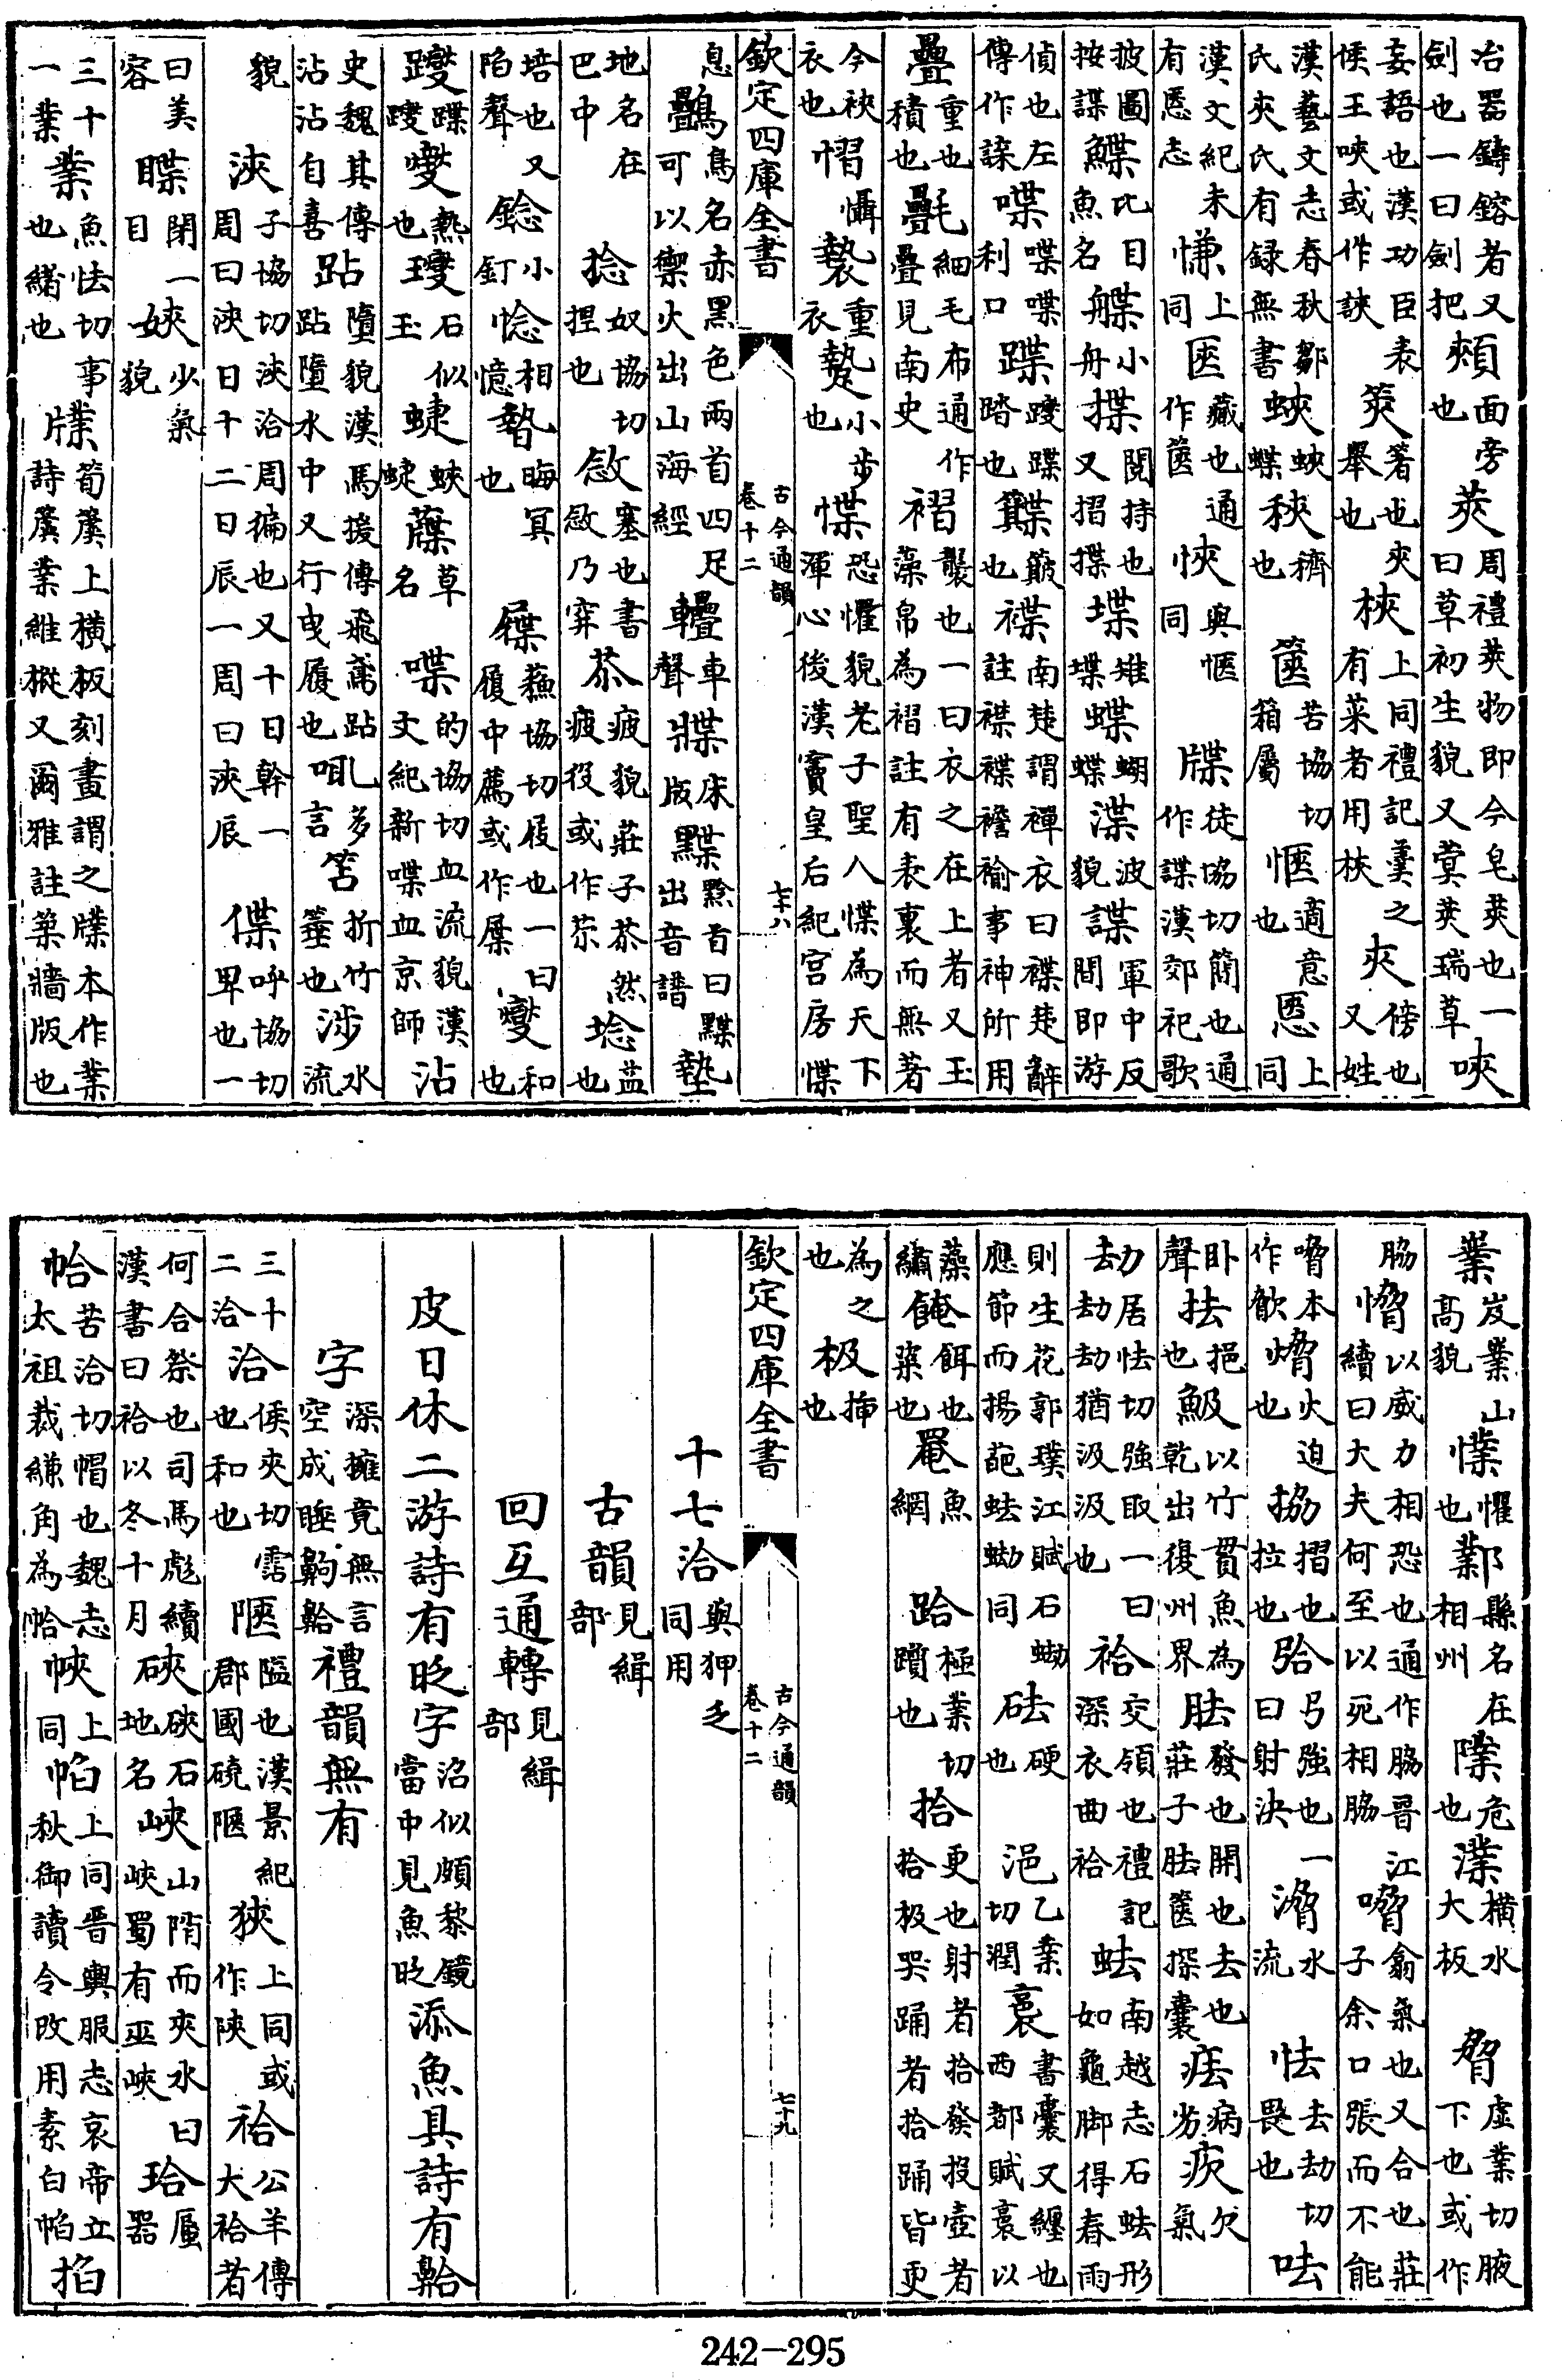 冶器鑄鎔者又劍也一曰劍把頰面旁也莢周禮莢物即今皂莢也一曰草初生貌又蓂莢瑞草唊
妄語也漢功臣表侯王唊或作詼筴箸也夾舉也梜上同禮記羹之有菜者用梜夾傍也又姓
漢藝文志春秋鄒氏夾氏有録無書蛺蛺蝶穧也篋苦協切箱屬愜適意也㥦上同
漢文紀未有㥦志慊上同匧藏也通作篋㤲與愜同牒徒協切簡也通作諜漢郊祀歌
披圖按諜鰈比目魚名艓小舟揲閱持也又摺揲堞雉堞蝶蝴蝶渫波貌諜軍中反間即游
偵也左傳作諜喋喋喋利口蹀躞蹀踏也簸也褋南楚謂襌衣曰褋楚辭註褋襜褕事神所用
疊重也積也氎細毛布通作疊見南史褶襲也一曰衣之在上者又玉藻帛為褶註有表裏而無著
今袂衣也慴懾褺重衣小步也惵恐懼貌老子聖人惵為天下渾心後漢竇皇后紀宫房惵
欽定四庫全書 古今通韻 卷十二 七十八
息鸓鳥名赤黑色兩首四足可以禦火出山海經車聲床版黔首曰出音譜墊
地名在巴中捻奴協切捏也敜塞也書敜乃穽苶疲貌莊子苶然疲役或作埝益也
培也又陷聲錜小釘惗相憶晦冥也屧蘓協切屐也一曰履中薦或作屟燮和也
躞蹀躞爕熱也石似玉蜨蛺蜨草名喋的協切血流貌漢文紀新喋血京師沾
史魏其傳沾沾自喜跕墮貌漢馬援傳飛鳶跕跕墮水中又行曳履也多言笘折竹箠也渉水流
貌浹子協切浹洽周徧也又十日幹一周曰浹日十二日辰一周曰浹辰偞呼協切卑也一
曰美容閉一目少氣貌
三十一業業魚怯切事也緒也牃筍簴上橫板刻畫謂之牃本作業詩簴業維樅又爾雅註築牆版也
嶪岌嶪山高貌懼也鄴縣名在相州危也橫水大板脅虛業切腋下也或作
脇愶以威力相恐也通作脇晉江續曰大夫何至以死相脇嗋翕氣也又合也莊子余口張而不能
嗋本作歙熁火迫也拹摺也拉也弓強也一曰射決水流怯去劫切畏也呿
卧聲抾挹也鮁以竹貫魚為乾出復州界胠發也開也去也莊子胠篋探囊病劣欠氣
劫居怯切強取一曰劫劫猶汲汲也袷交領也禮記深衣曲袷蚨南越志石蚨形如龜脚得春雨
則生花郭璞江賦石蚴應節而揚葩蚨蚴同砝硬也浥乙業切潤裛書囊又纏也西都賦裛以
藻繡餌也䊈也罨魚網跲極業切躓也拾更也射者拾發投壺者拾极哭踊者拾踊皆更
為之也极插也
欽定四庫全書 古今通韻 卷十二 七十九
十七洽與狎乏同用
古韻見緝部
回互通轉見緝部
皮日休二游詩有眨字沼似頗黎鏡當中見魚眨添魚具詩有齁
字深擁竟無言空成睡齁禮韻無有
三十二洽洽侯夾切霑也和也陿隘也漢景紀郡國磽陿狹上同或作陜祫公羊傳大祫者
何合祭也司馬彪續漢書曰祫以冬十月硤硤石地名峽山陗而夾水曰峽蜀有巫峽珨蜃器
帢苦洽切帽也魏志太祖裁縑角為帢㡇上同帕上同晉輿服志哀帝立秋御讀令改用素白帕掐
242-295